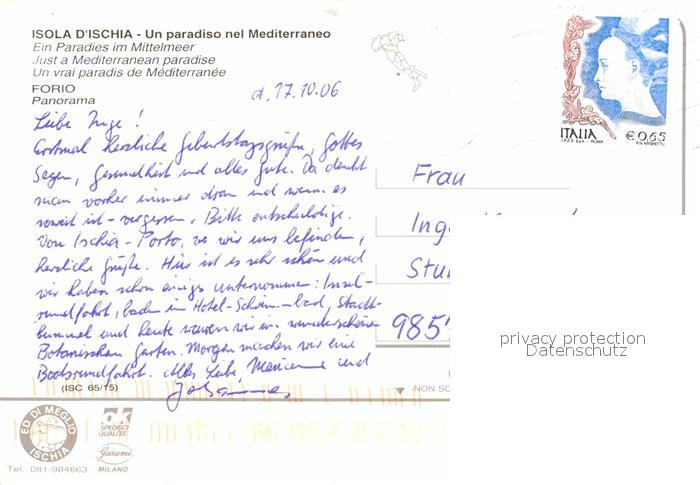 ISOLA D'ISCHIA - Un paradiso nel Mediterraneo
Ein Paradies im Mittelmeer
Just a Mediterranean paradise
Un vrai paradis de Méditerranée
FORIO
Panorama
d. 17.10.06
Liebe Inge!
Erstmal herzliche Geburtstagsgrüße, Gottes
Segen, Gesundheit und alles Gute. Da denkt
man vorher immer dran und wenn es
soweit ist - vergessen. Bitte entschuldige.
Von Ischia - Porto, wo wir uns befinden,
herzliche Grüße. Hier ist es sehr schön und
wir haben schon einiges unternommen: Insel-
rundfahrt, baden im Hotel-Schwimmbad, Stadt-
bummel und heute waren wir im wunderschönen
Botanischen Garten. Morgen machen wir eine
Bootsrundfahrt. Alles Liebe Marianne und
Johannes
(ISC 65/15)
ITALIA
€0,65
I.P.Z.S. S.p.A. - ROMA
Frau
Ing
Stu
985
privacy protection
Datenschutz
NON SC
ED. DI MEGLIO
ISCHIA
Tel. 081/984663
QUALITÀ
Garami
MILANO